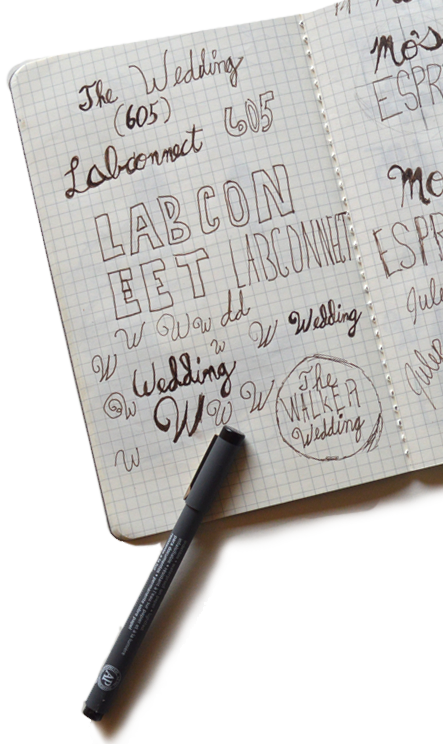 The Wedding
(605) 605
Labconnect
LABCON
EET LABCONNECT
W W W w dd
W w W Wedding
Wedding
W W W W
W
The
WALKER
Wedding
Mo's
ESPR
Mo
ESPR
Jule
Jule
AP